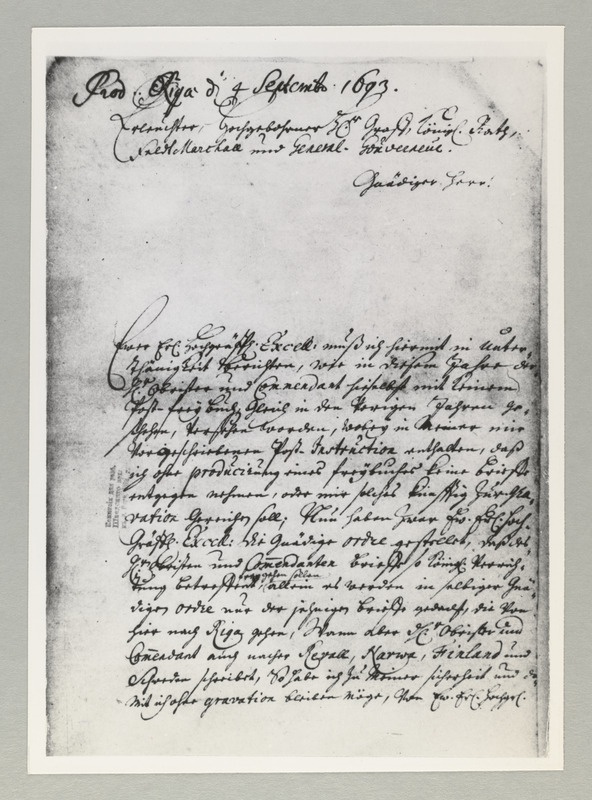 Prod: Riga d 4 Septembr. 1693.
Erleuchter, Hochgebohrner Hr Graff, Königl. Rath,
Feldt Marchall und General-Gouverneur.
Gnädiger Herr!
Ewer Erl. Hochgräffl: Excell: muß ich hiermit in Unter-
thänigkeit berichten, wie in diesem Jahre der
Hr Obrister und Commendant hieselbst mit keinem
Post-freybuch, Gleich in den Vorigen Jahren ge-
schehen, versehen worden, wobey in Meiner mir
Vorgeschriebenen Post-Instruction enthalten, daß
ich ohne producirung eines freybuches keine brieffe
entgegen nehmen, oder mir solches künfftig zur Gra-
vation Gereichen soll; Nun haben zwar Ew. Erl. Hoch-
Gräffl: Excell: die Gnädige ordre gestellet, daß des
Hr Obristen und Commendanten brieffe so Königl. Verrich-
tung betreffen frey gehen sollen allein es werden in selbiger Gnä-
digen ordre nur der jehnigen brieffe gedacht, die Von
hier nach Riga gehen, Wann aber d. Hr Obrister und
Commendant auch nacher Revall, Narwa, Finland und
Schweden schreibet, So habe ich zu Meiner sicherheit und da-
mit ich ohne gravation bleiben möge, Von Ew. Erl. Hochgrl.